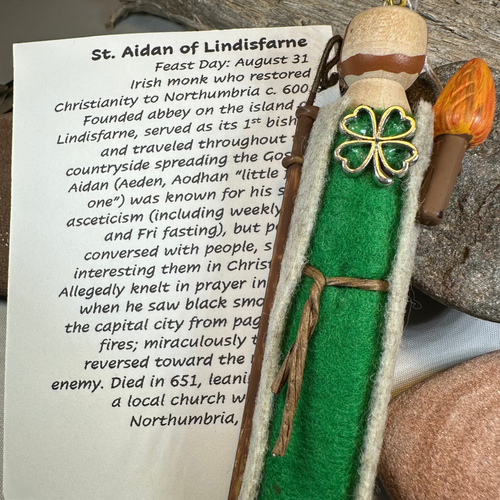 St. Aidan of Lindisfarne
Feast Day: August 31
Irish monk who restored
Christianity to Northumbria c. 600
Founded abbey on the island
Lindisfarne, served as its 1st bish
and traveled throughout
countryside spreading the Go
Aidan (Aeden, Aodhan "little
one") was known for his s
asceticism (including weekly
and Fri fasting), but p
conversed with people, s
interesting them in Christ
Allegedly knelt in prayer in
when he saw black smo
the capital city from pag
fires; miraculously t
reversed toward the
enemy. Died in 651, leani
a local church w
Northumbria,